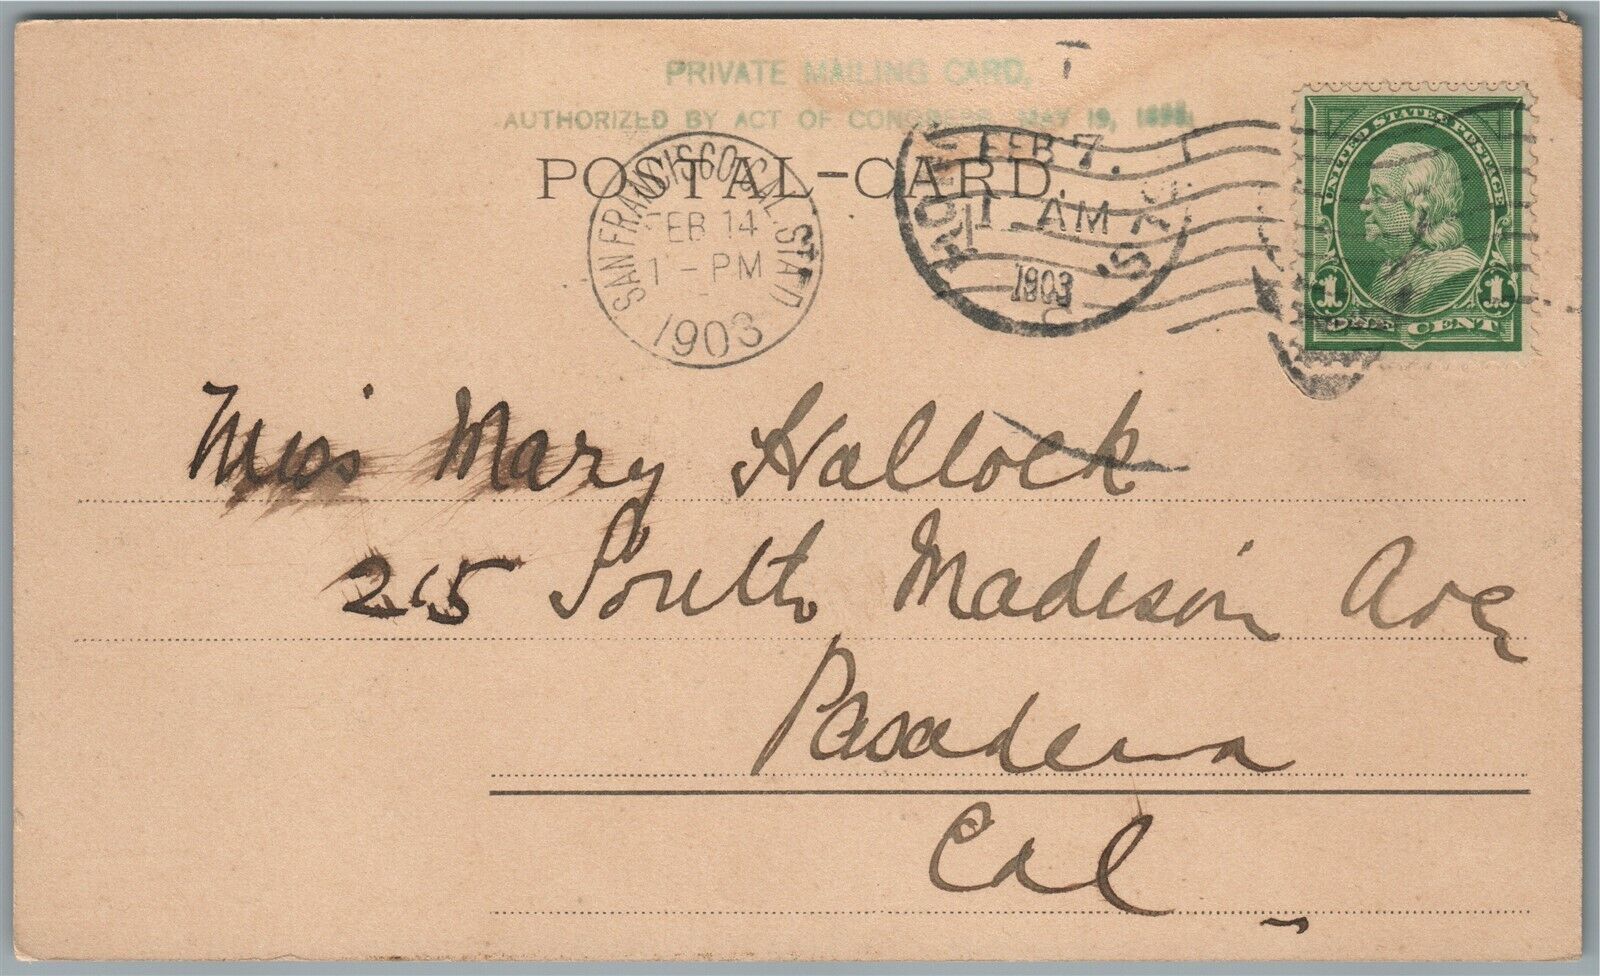 PRIVATE MAILING CARD,
AUTHORIZED BY ACT OF CONGRESS, MAY 19, 1898.
POSTAL-CARD.
SAN FRANCISCO, CAL. STA.
FEB 14
1 - PM
1903
FEB 7.
AM
1903
UNITED STATES POSTAGE
1 1
ONE CENT
Miss Mary Hallock
25 South Madison Ave
Pasadena
Cal